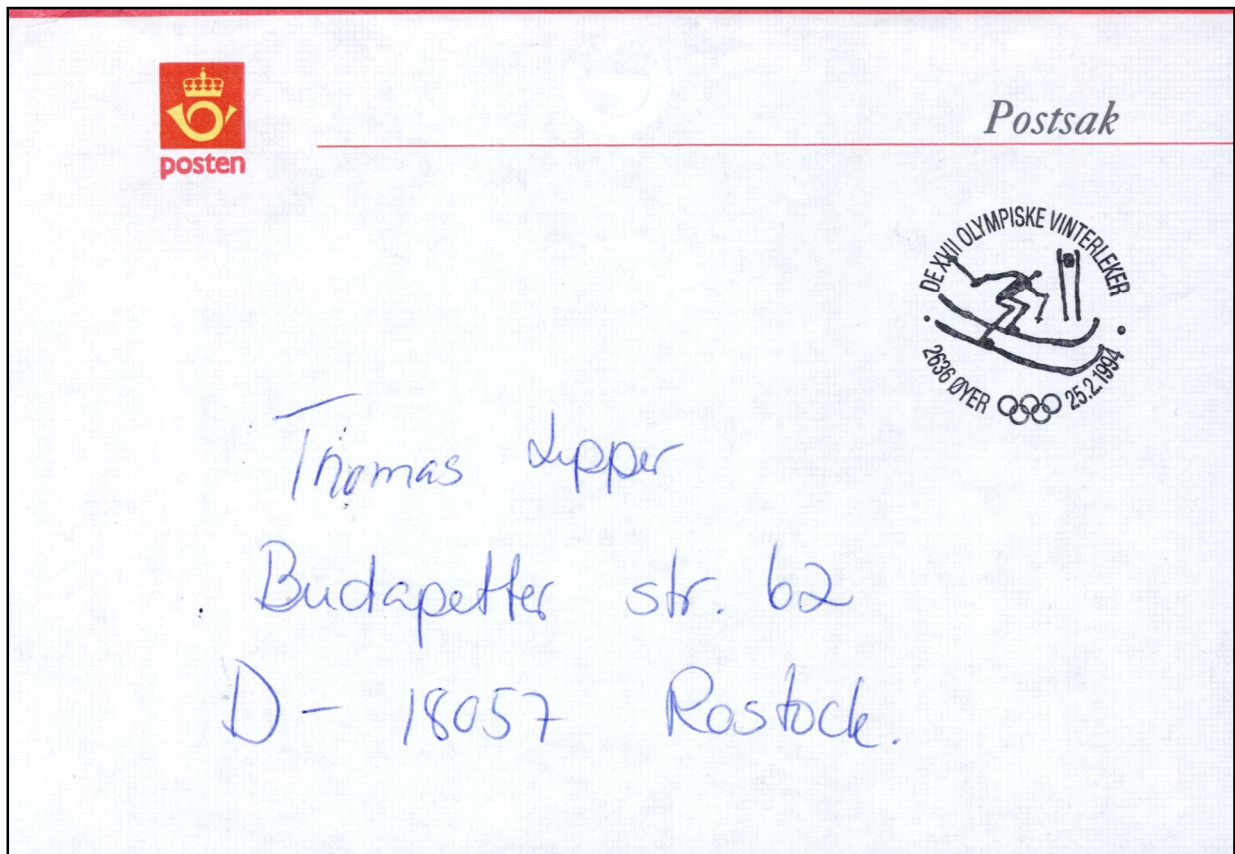 posten
Postsak
DE XVII OLYMPISKE VINTERLEKER
2636 ØYER 25.2.1994
Thomas Lipper
Budapetter str. 62
D - 18057 Rostock.